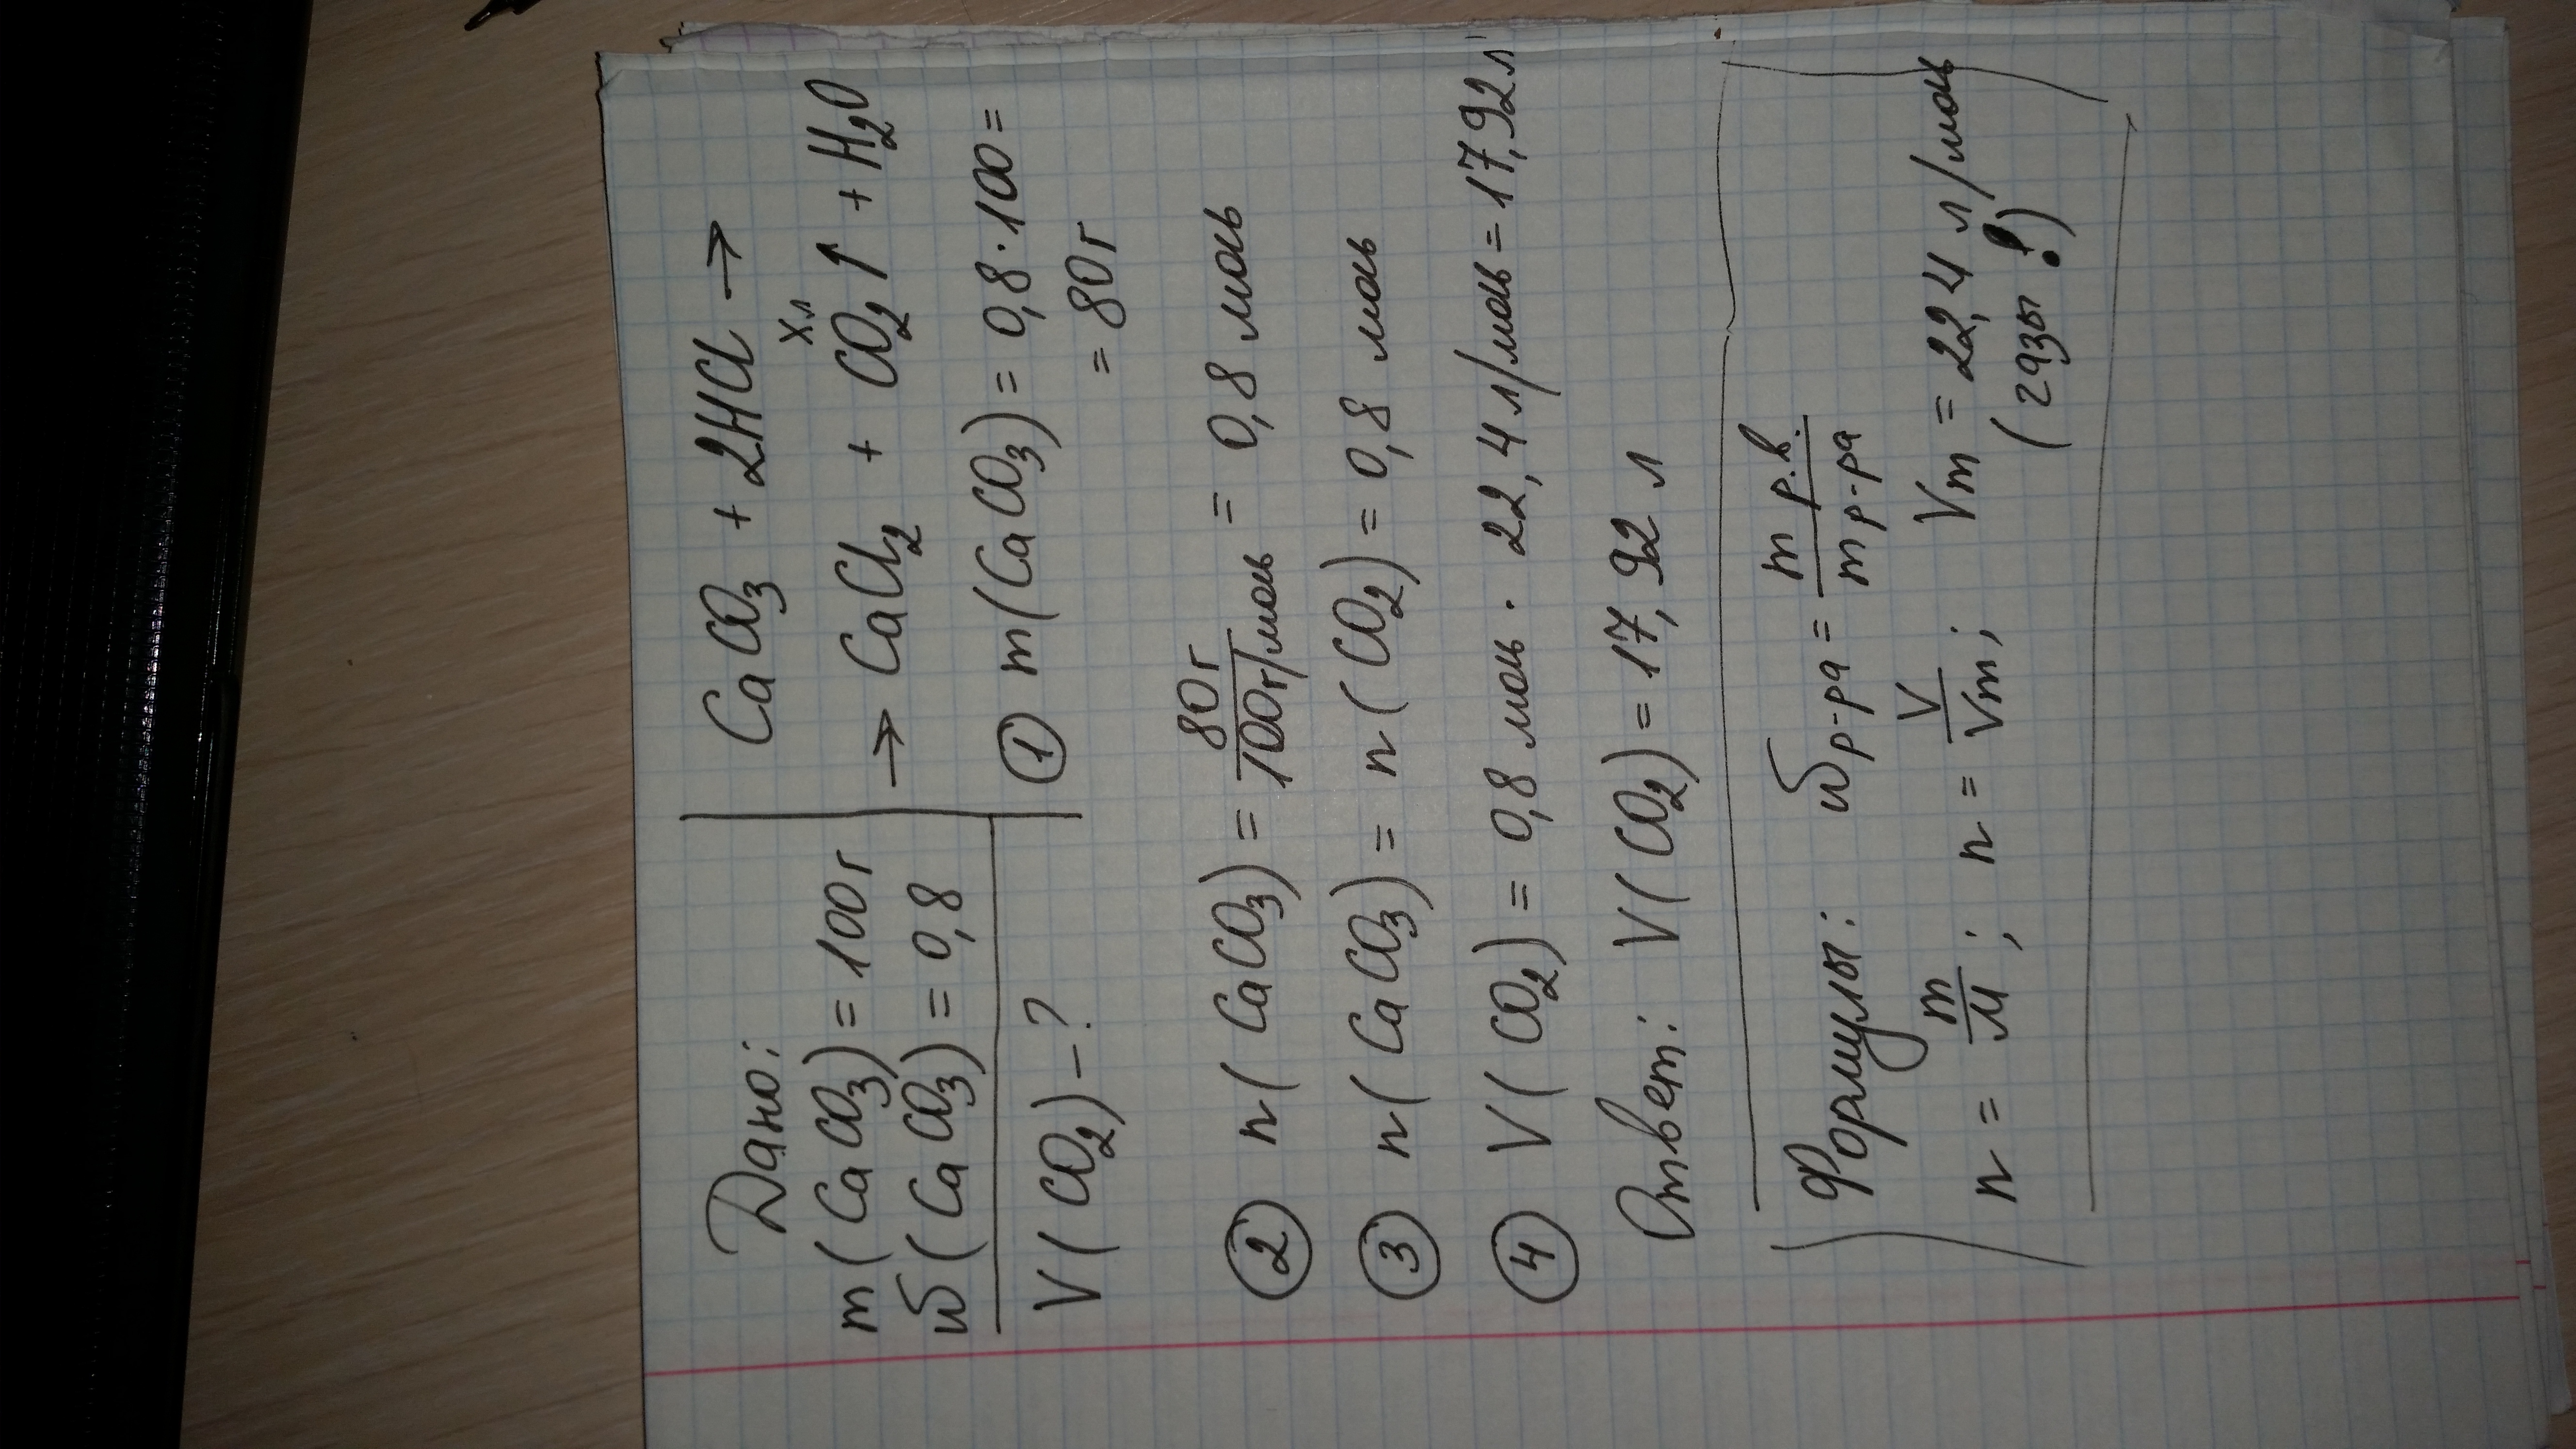 Дано:
m(CaCO₃) = 100г
ω(CaCO₃) = 0,8
V(CO₂) – ?
CaCO₃ + 2HCl →
xл
→ CaCl₂ + CO₂↑ + H₂O
① m(CaCO₃) = 0,8·100 =
= 80г
② n(CaCO₃) = 80г/100г/моль = 0,8 моль
③ n(CaCO₃) = n(CO₂) = 0,8 моль
④ V(CO₂) = 0,8 моль · 22,4 л/моль = 17,92л
Ответ: V(CO₂) = 17,92 л
Формулы: ωр-ра = m р.в./m р-ра
n = m/M; n = V/Vm; Vm = 22,4 л/моль
(газы!)